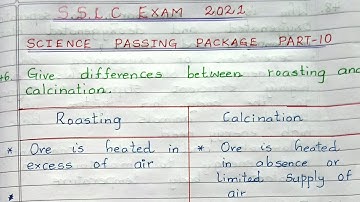 S.S.L.C EXAM 2021
SCIENCE PASSING PACKAGE PART-10
Give differences between roasting and
calcination.
Roasting Calcination
* Ore is heated in
excess of air
* Ore is heated
in absence or
limited supply of
air
*